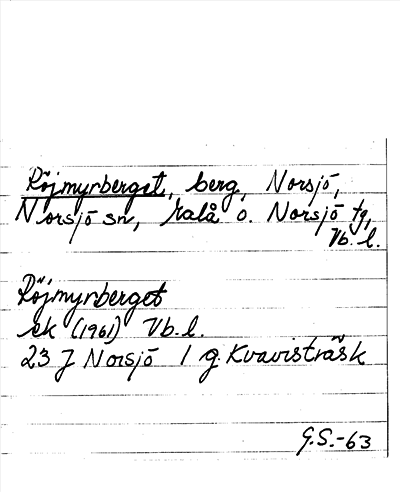 Röjmyrberget, berg, Norsjö,
Norsjö sn, Malå o. Norsjö tg,
Vb. l.
Röjmyrberget
ek (1961) Vb. l.
23 J Norsjö 1 g Kvavisträsk
G.S.-63